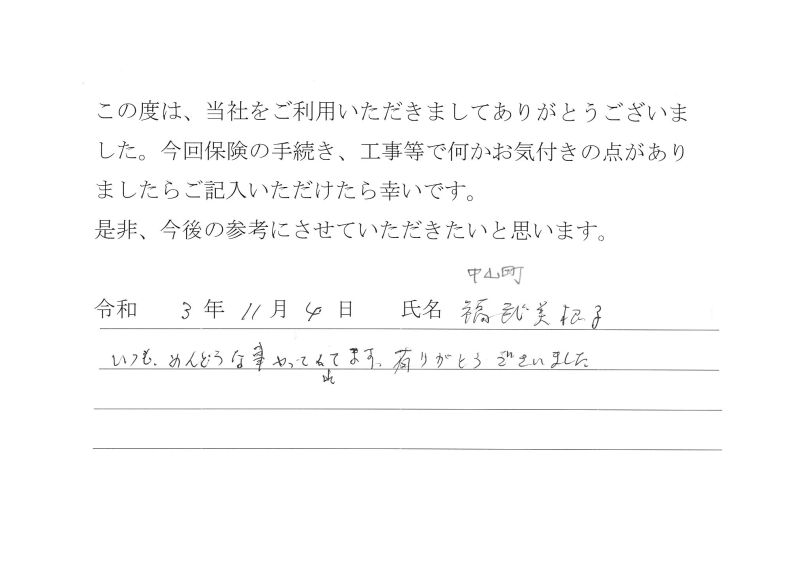 この度は、当社をご利用いただきましてありがとうございま
した。今回保険の手続き、工事等で何かお気付きの点があり
ましたらご記入いただけたら幸いです。
是非、今後の参考にさせていただきたいと思います。
中山町
令和 3年 11月 4日 氏名 美
いつも、めんどうな事やってくれてます。有りがとうございました